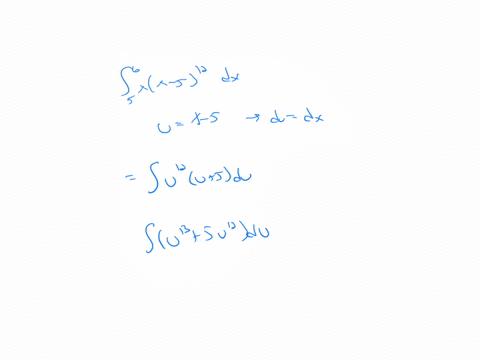 ∫₅⁶ x(x-5)¹² dx
u = x-5 → d = dx
= ∫ u¹² (u+5) du
∫(u¹³ + 5u¹²) du